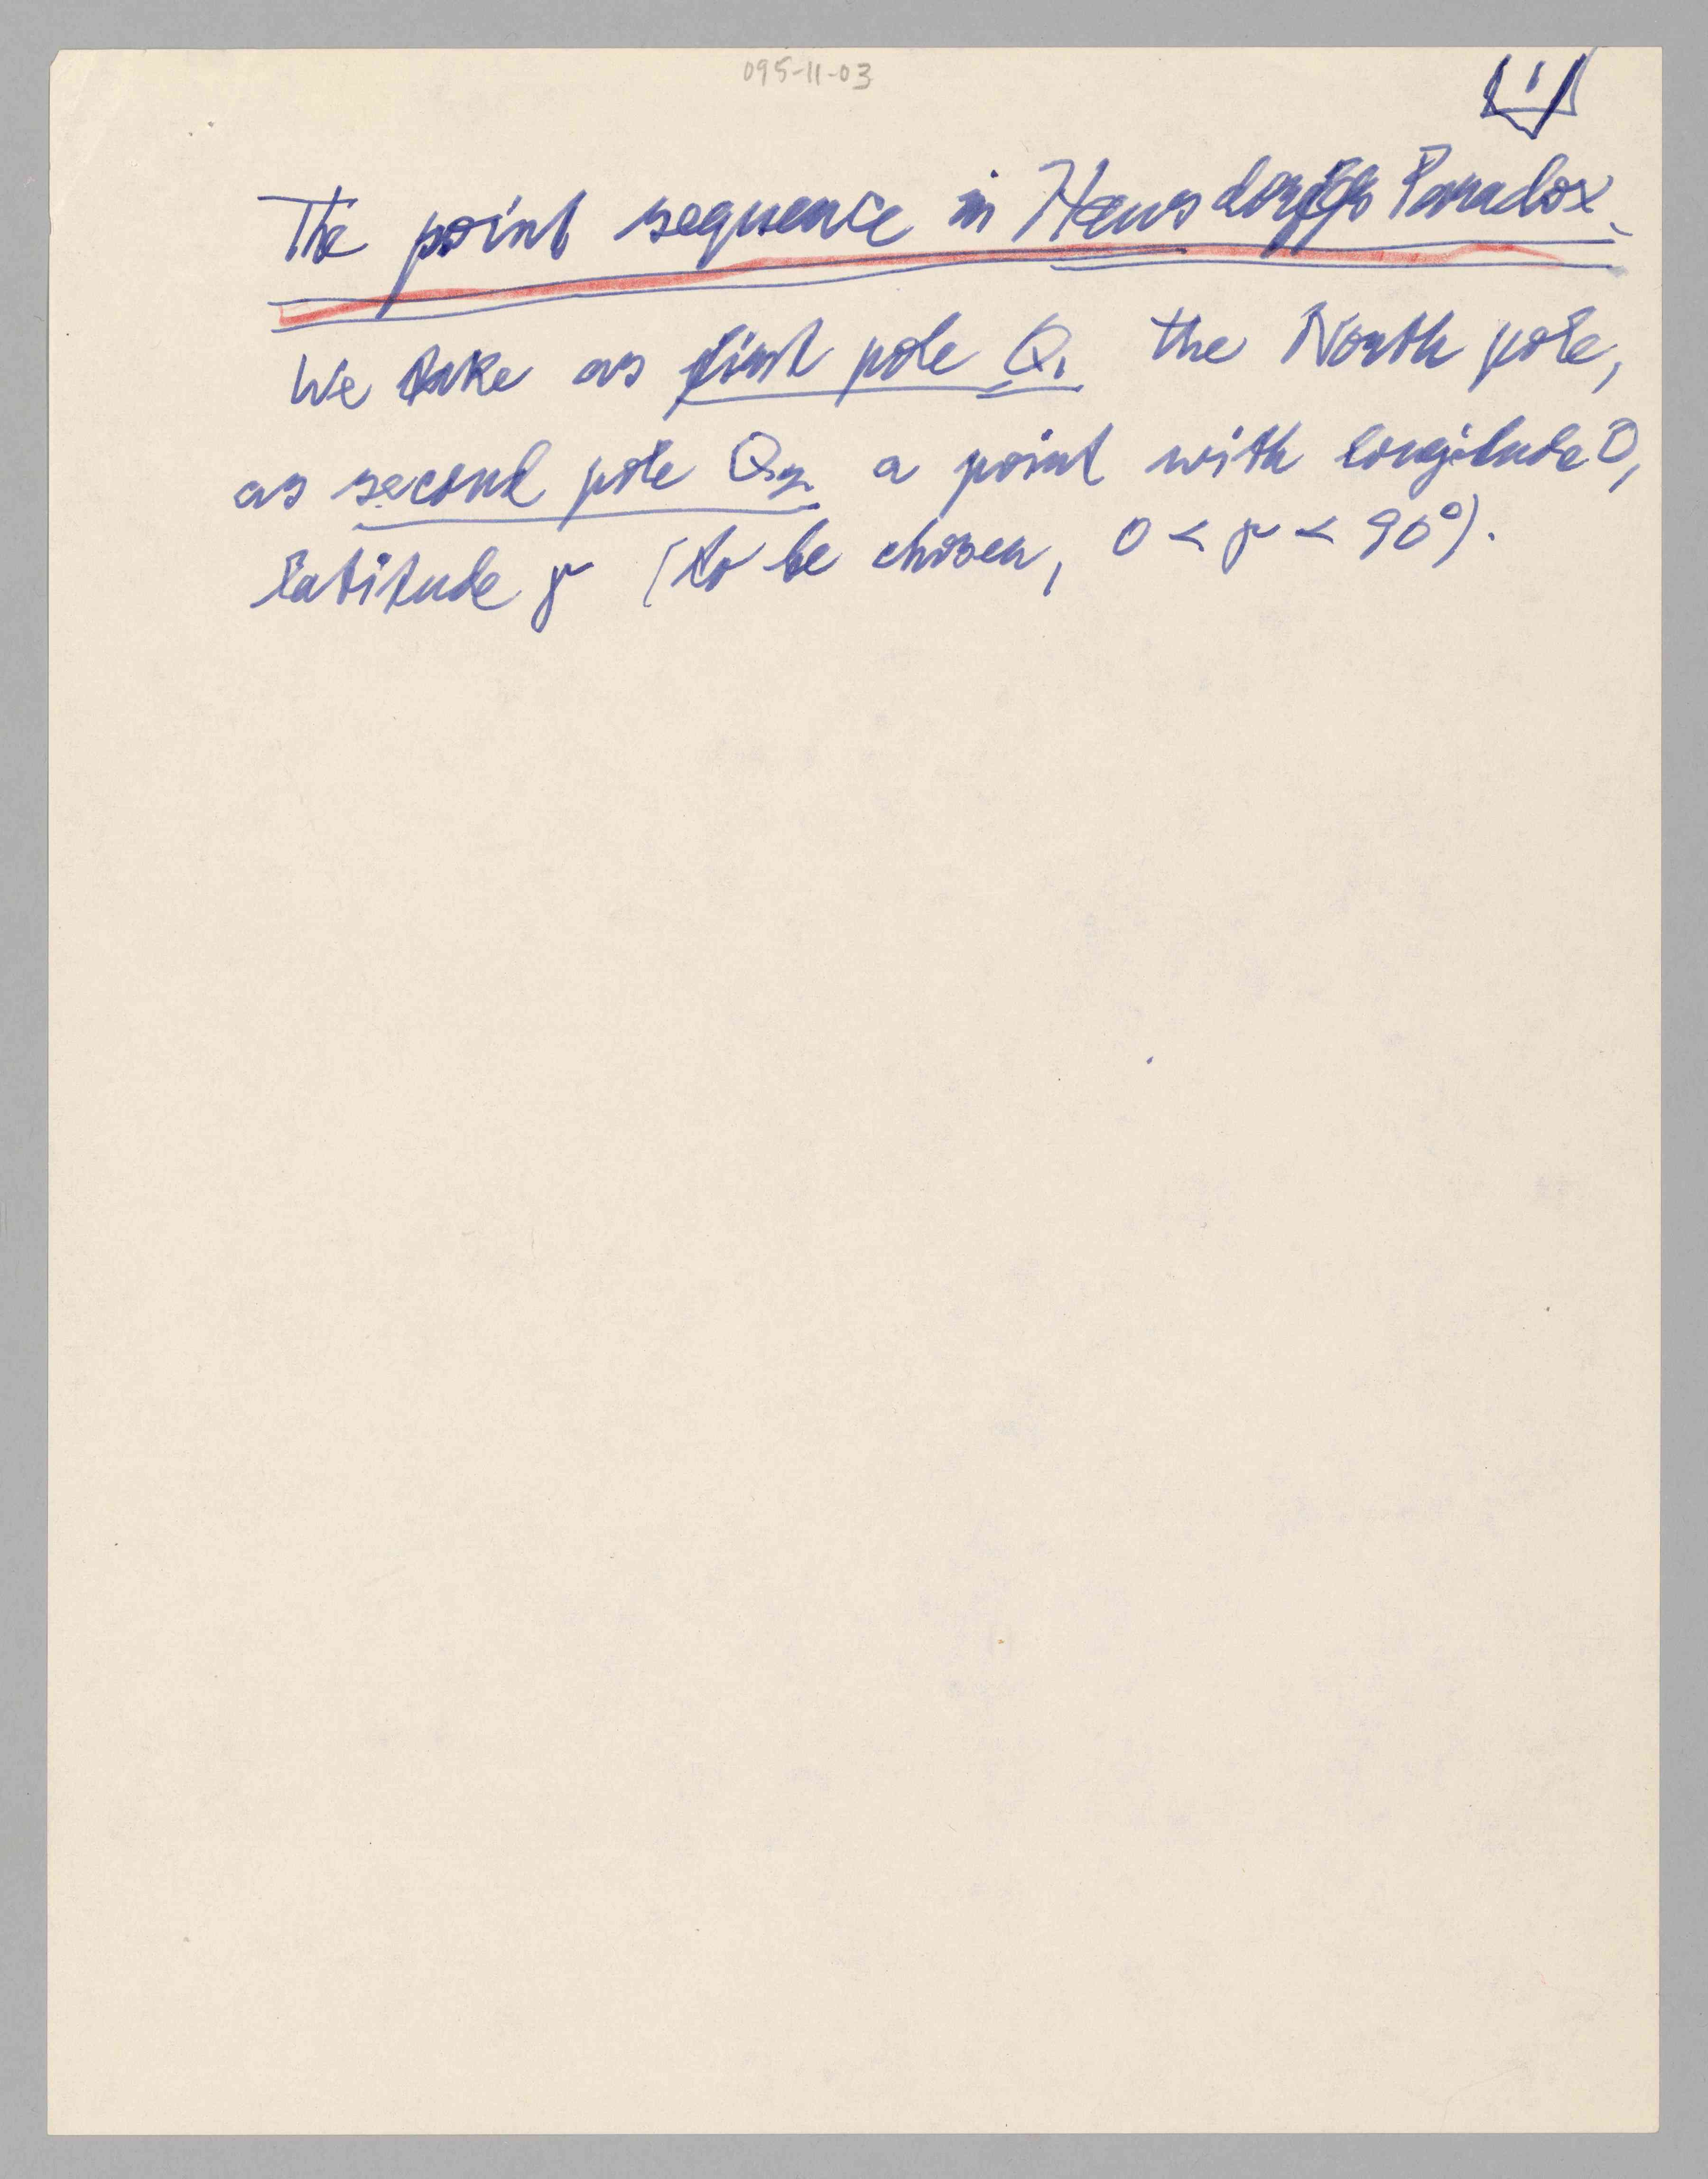 095-11-03
1
The point sequence in Hausdorffs Paradox.
We take as first pole Q₁ the North pole,
as second pole Q₂, a point with longitude 0,
latitude γ (to be chosen, 0 < γ < 90°).